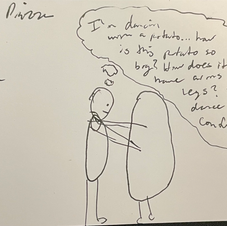 I'm dancing
with a potato... how
is this potato so
big? How does it
have arms
legs?
dance